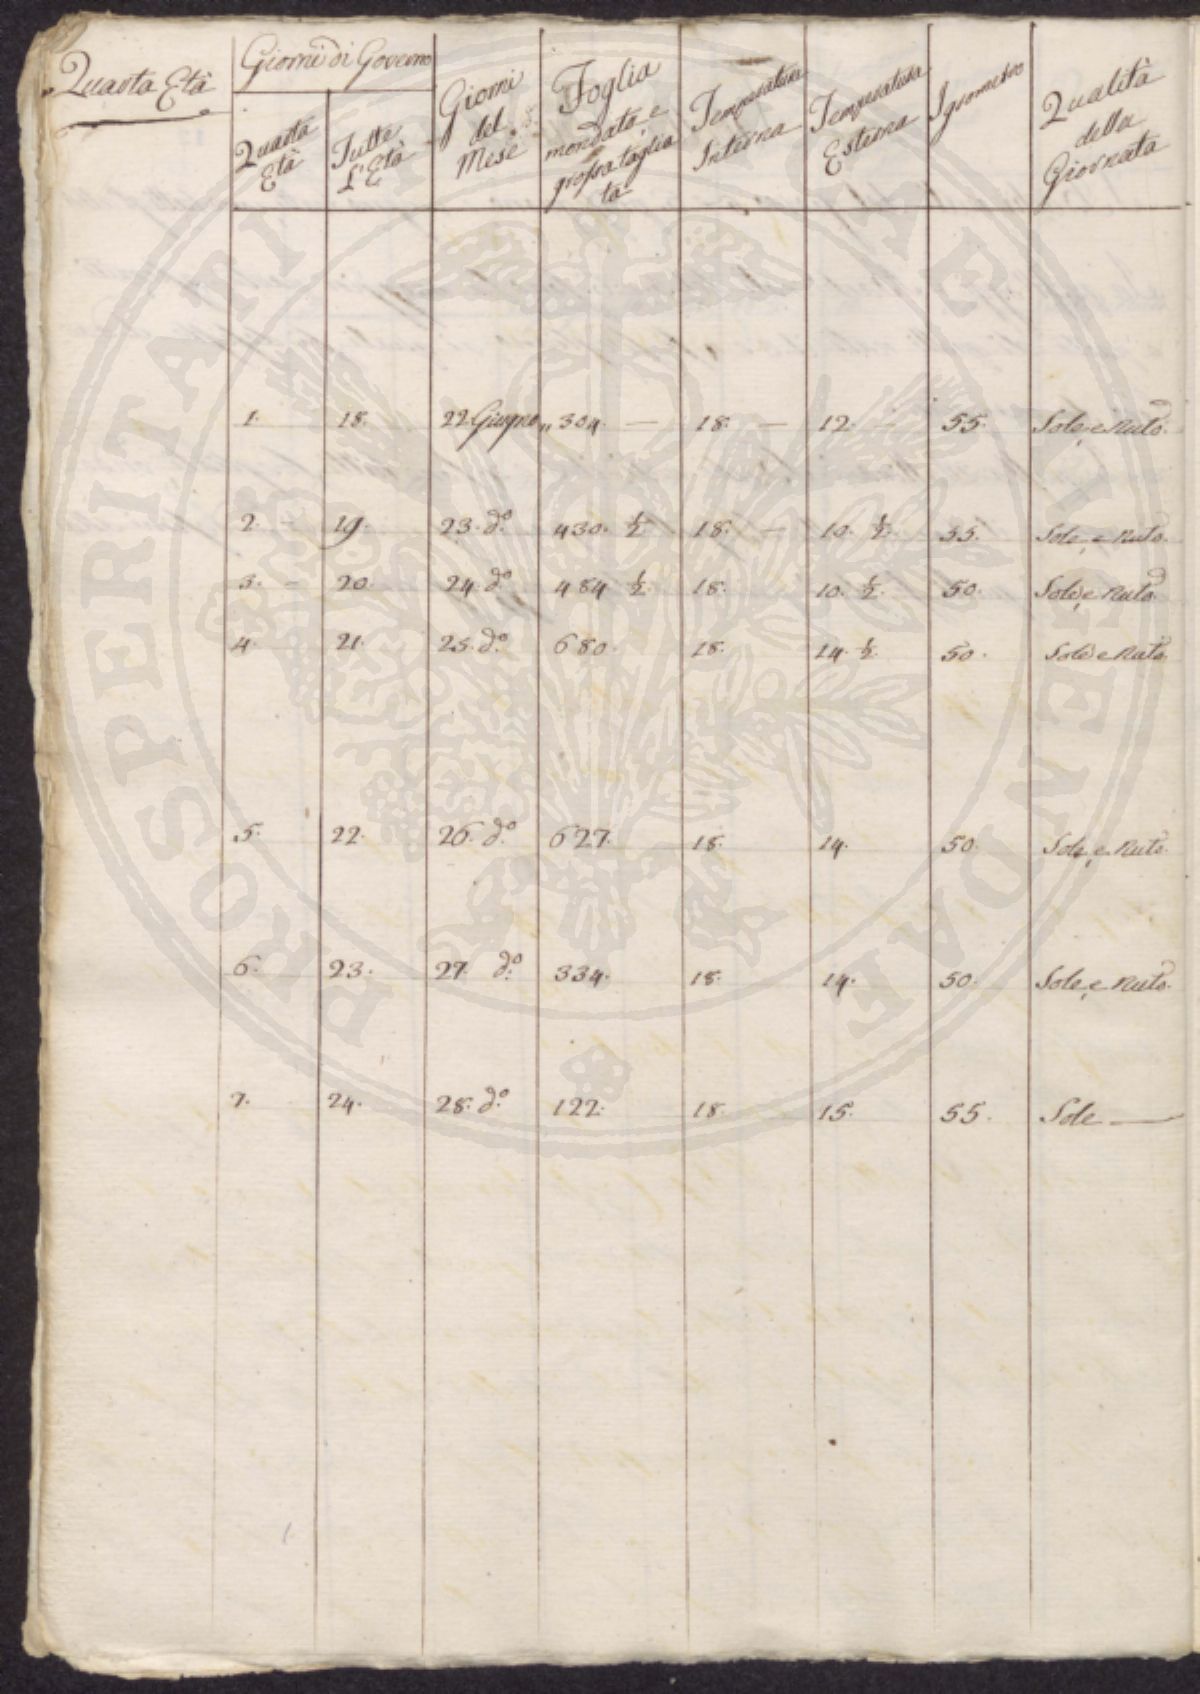 Quarta Età
Giorni di Governo
Quarta Età
Tutte L'Età
Giorni del Mese
Foglia mondata, e grossa tagliata
Temperatura Interna
Temperatura Esterna
Igrometro
Qualità della Giornata
1. 18. 22 Giugno „ 304. — 18. — 12. — 55. Sole, e Nuto.
2. – 19. 23. do. 430. ½ 18. — 10. ½. 55. Sole, e Nuto.
3. – 20. 24. do. 484 ½ 18. 10. ½. 50. Sole, e Nuto.
4. 21. 25. do. 680. 18. 14. ½. 50. Sole e Nuto.
5. 22. 26. do. 627. 18. 14. 50. Sole, e Nuto.
6. 23. 27. do. 334. 18. 14. 50. Sole, e Nuto.
7. 24. 28. do. 122. 18. 15. 55. Sole —
PROSPERITATI PUBLICAE AUGENDAE